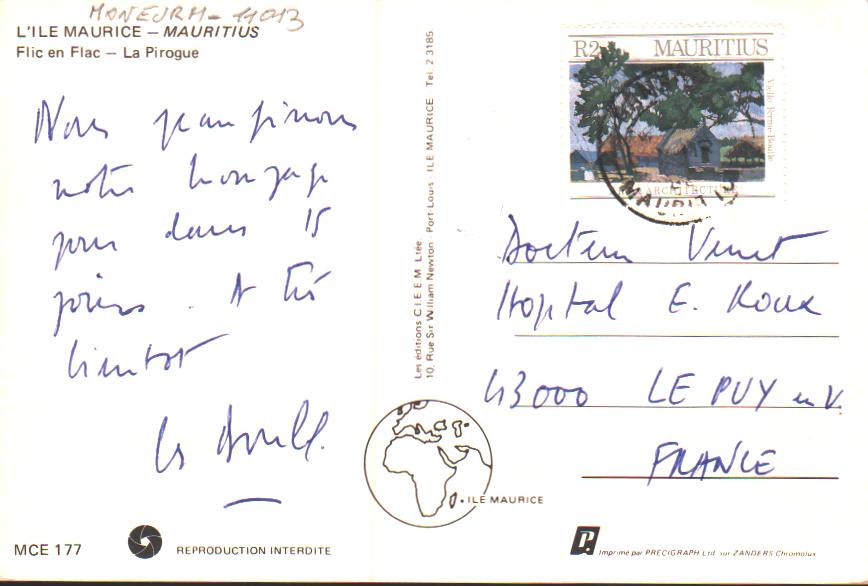 L'ILE MAURICE – MAURITIUS
Flic en Flac – La Pirogue
Nous
notre
pour dans 15
jours. A très
bientôt
Les
MCE 177
REPRODUCTION INTERDITE
Les éditions C.I.E.E.M. Ltée.
10, Rue Sir William Newton Port-Louis - ILE MAURICE Tel. 2 3185
ILE MAURICE
R2 MAURITIUS
ARCHITECTURE
Docteur
Hopital E. Roux
43000 LE PUY en V.
FRANCE
Imprimé par PRECIGRAPH Ltd sur ZANDERS Chromolux